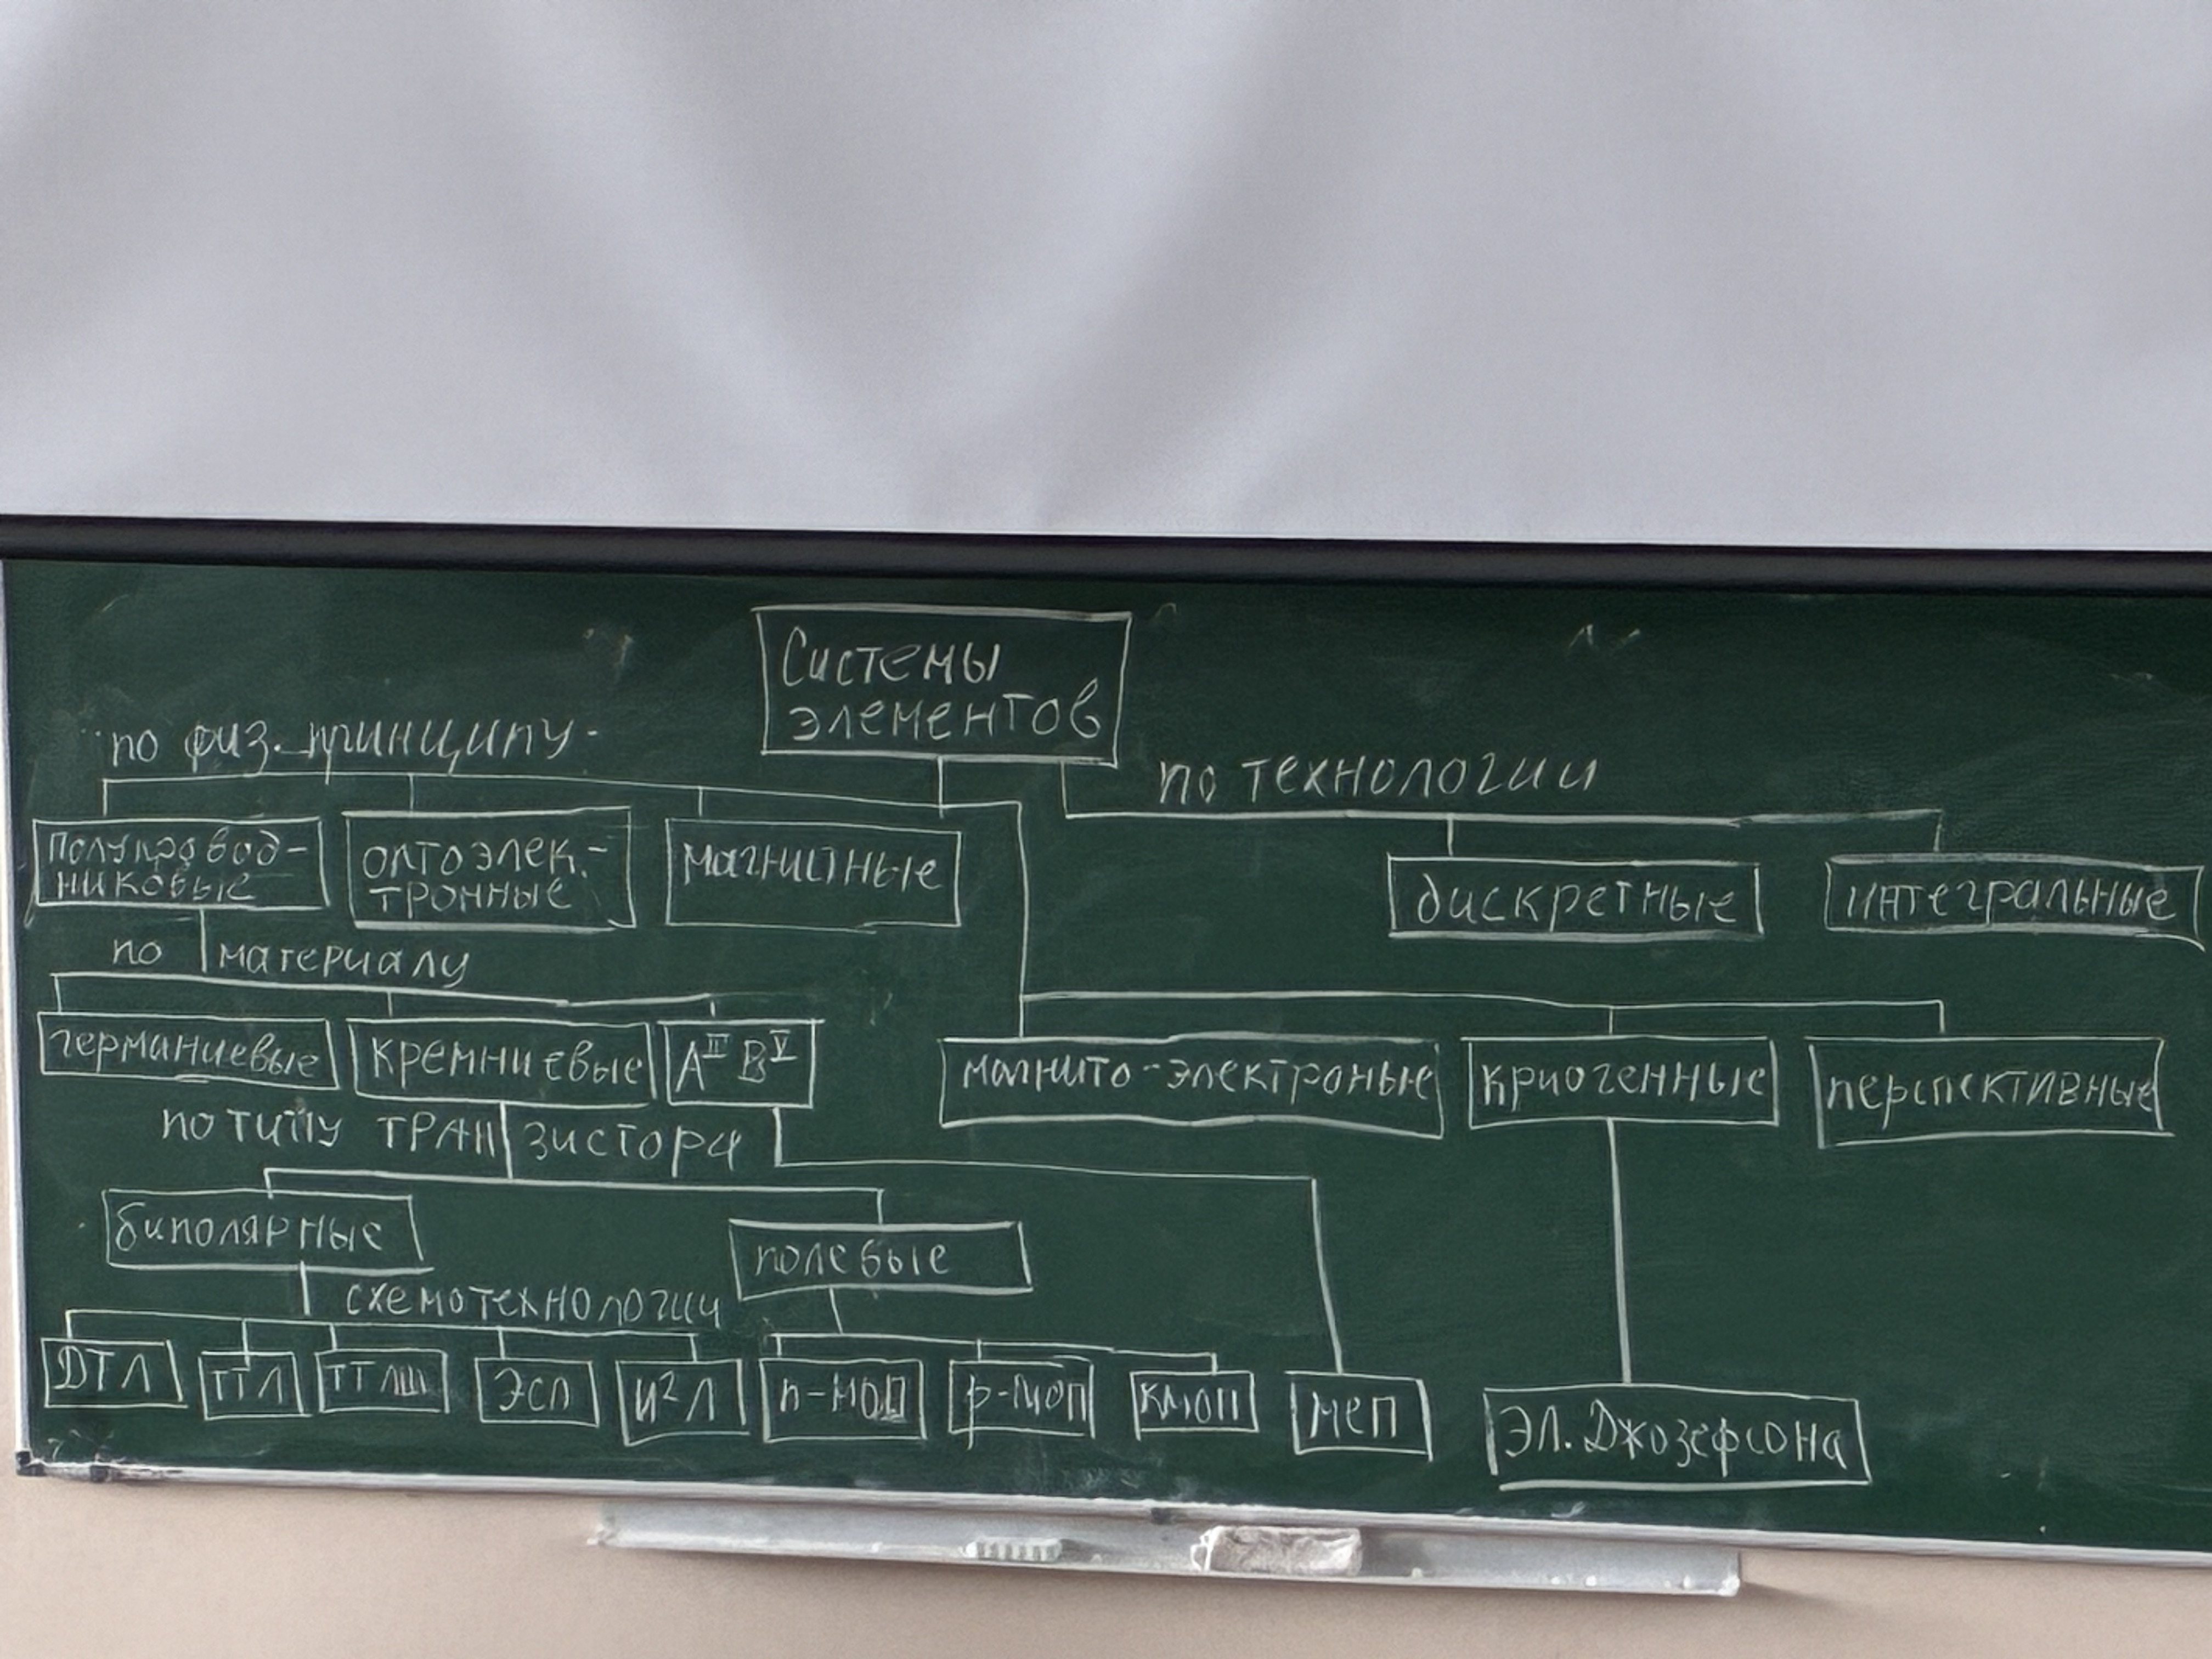 Системы
элементов
по физ. принципу
по технологии
полупровод-
никовые
оптоэлек.-
тронные
магнитные
дискретные
интегральные
по материалу
германиевые
кремниевые
A^III B^V
магнито-электроные
криогенные
перспективные
по типу транзистора
биполярные
полевые
схемотехнологии
ДТЛ
ТТЛ
ТТЛШ
ЭСЛ
И²Л
n-МОП
p-МОП
КМОП
МЕП
ЭЛ. Джозефсона